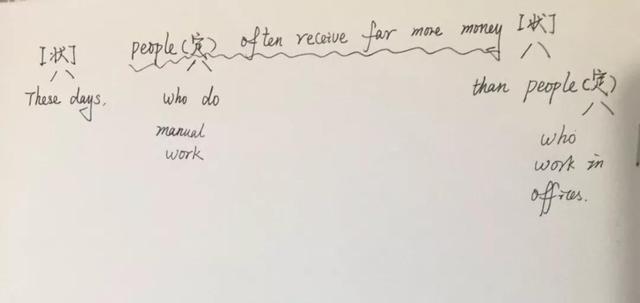 [状] people(定) often receive far more money [状]
These days. who do than people(定)
manual who
work work in
offices.